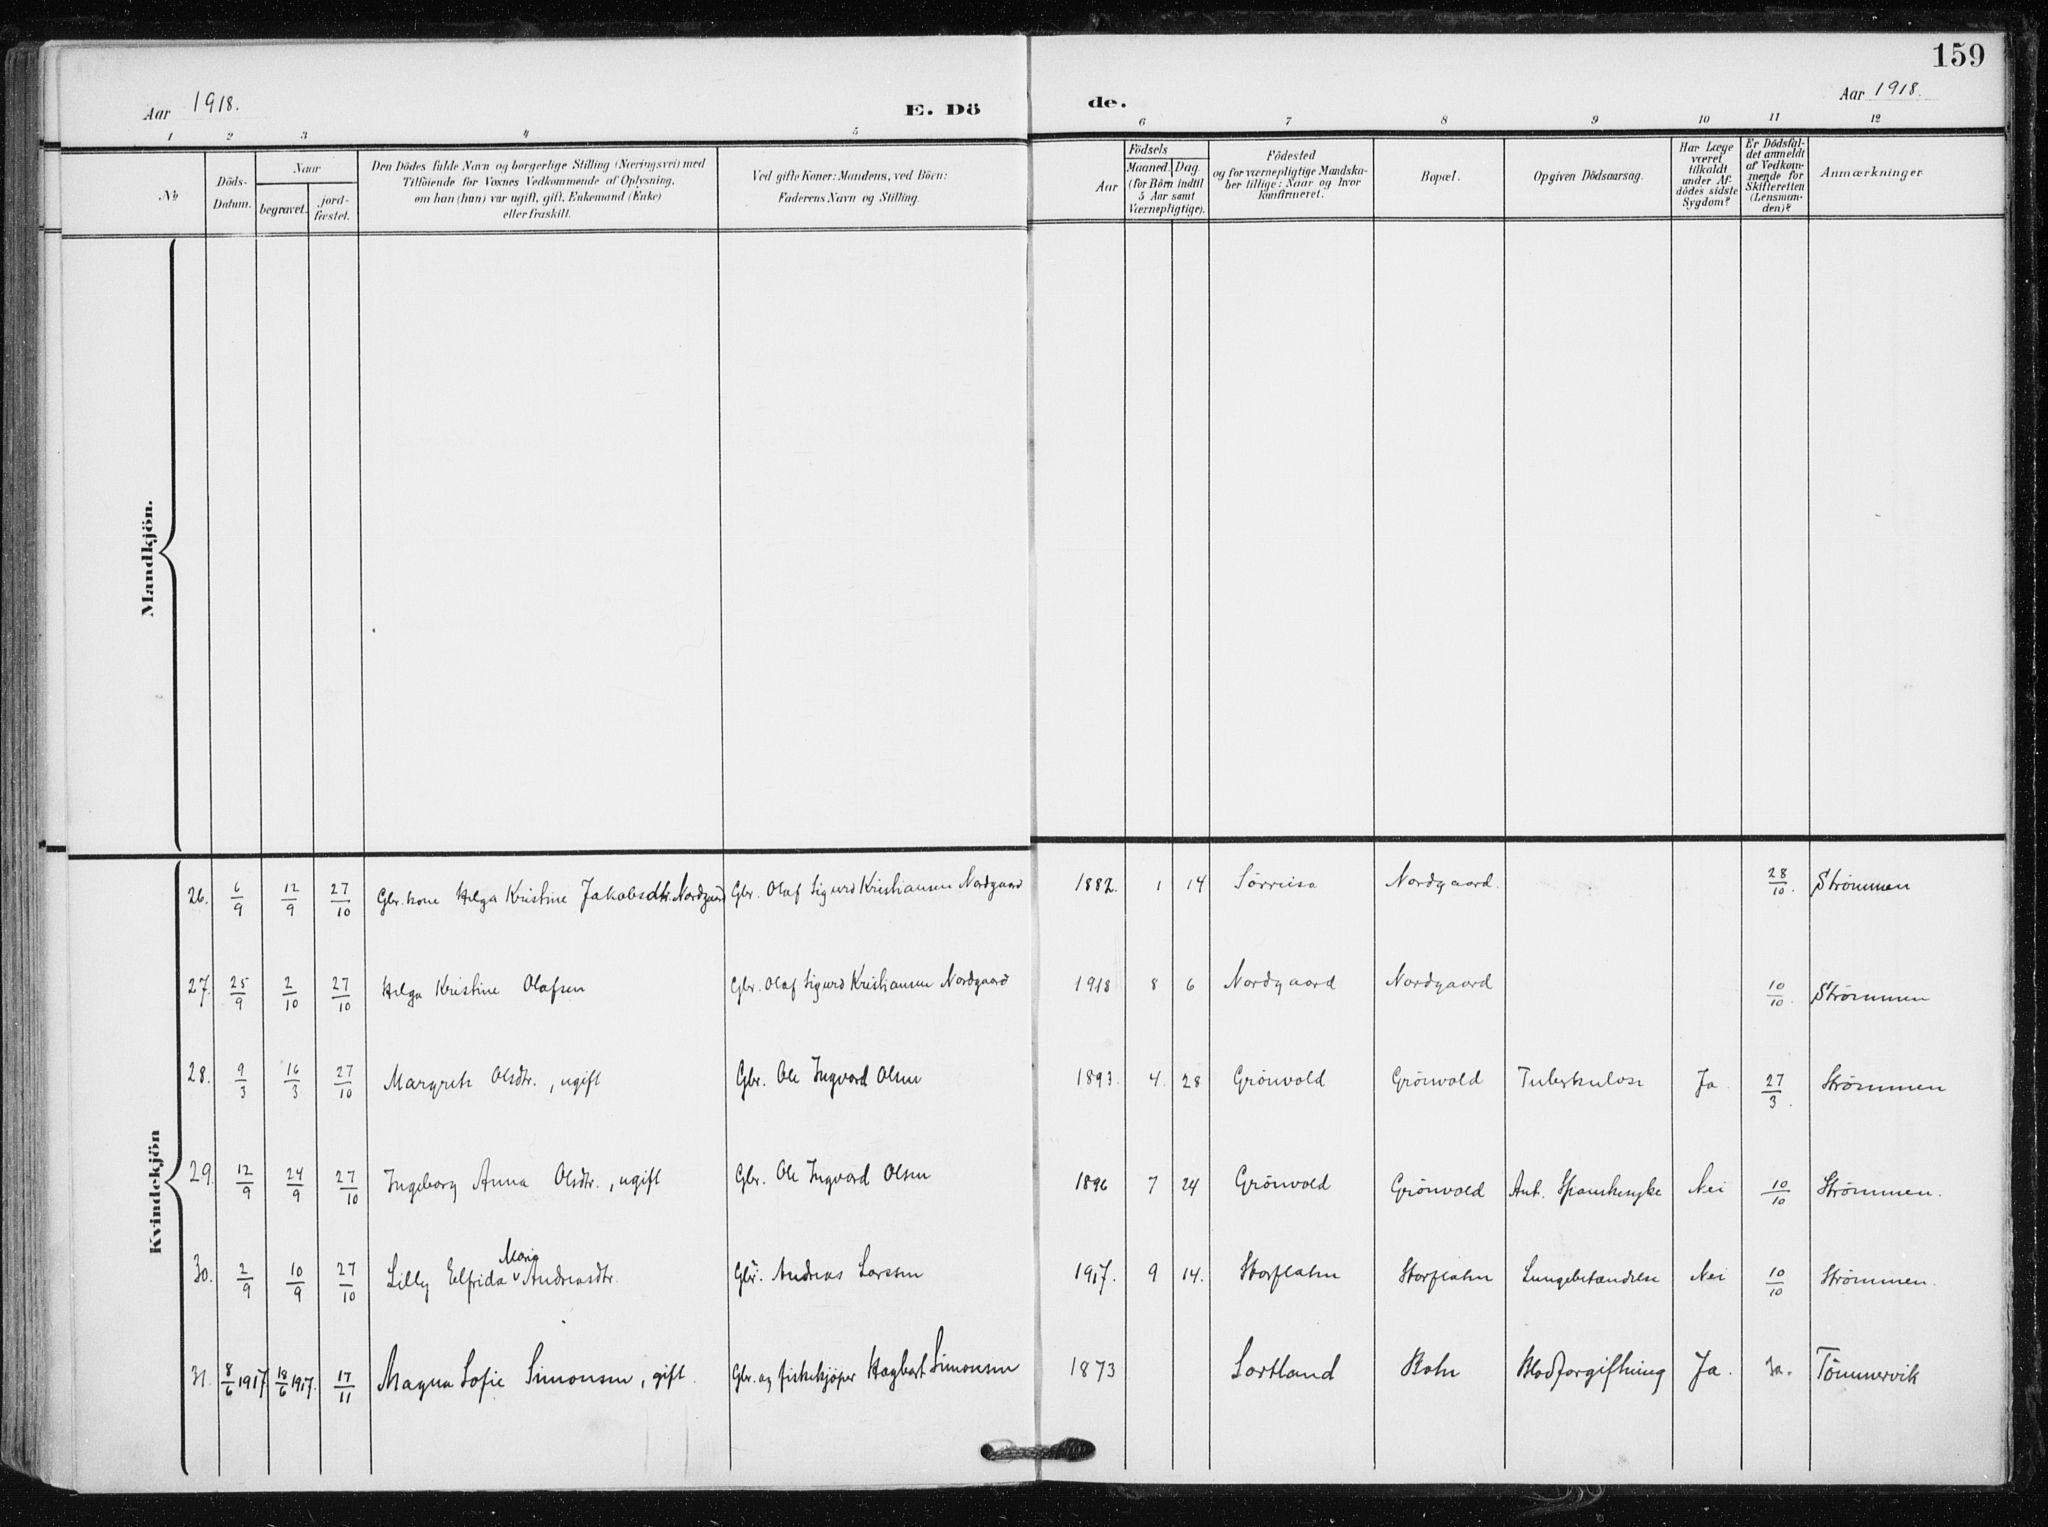 159
Aar 1918.
E. Dö
de.
Aar 1918.
1 2 3 4 5 6 7 8 9 10 11 12
No
Döds-
Datum.
Naar
begravet.
jord-
fæstet.
Den Dödes fulde Navn og borgerlige Stilling (Næringsvei) med
Tilföiende for Voxnes Vedkommende af Oplysning,
om han (hun) var ugift, gift, Enkemand (Enke)
eller fraskilt.
Ved gifte Koner: Mandens, ved Börn:
Faderens Navn og Stilling.
Aar
Födsels
Maaned. Dag.
(for Börn indtil
5 Aar samt
Værnepligtige).
Födested
og for værnepligtige Mandska-
ber tillige: Naar og hvor
konfirmeret.
Bopæl.
Opgiven Dödsaarsag.
Har Læge
været
tilkaldt
under Af-
dödes sidste
Sygdom?
Er Dödsfal-
det anmeldt
af Vedkom-
mende for
Skifteretten
(Lensman-
den)?
Anmærkninger
Mandkjön.
Kvindekjön
26. 6/9 12/9 27/10 Gbr. kone Helga Kristine Jakobsdtr. Nordgaard Gbr. Olaf Sigurd Kristiansen Nordgaard 1882. 1 14 Sørreisa Nordgaard. 28/10. Strømmen
27. 25/9 2/10 27/10 Helga Kristine Olafsen Gbr. Olaf Sigurd Kristiansen Nordgaard 1918 8 6 Nordgaard Nordgaard 10/10. Strømmen
28. 9/3 16/3 27/10 Margrete Olsdtr., ugift Gbr. Ole Ingvard Olsen 1893. 4. 28 Grönvold Grönvold Tuberkulose Ja 27/3. Strømmen
29. 12/9 24/9 27/10 Ingeborg Anna Olsdtr., ugift Gbr. Ole Ingvard Olsen 1896 7 24 Grönvold Grönvold Ant. Spanskesyke Nei 10/10 Strømmen.
30. 2/9 10/9 27/10 Lilly Elfrida Maria Andreasdtr. Gbr. Andreas Larssen 1917. 9 14. Storslahn Storslahn Lungebetændelse Nei 10/10 Strømmen.
31. 8/6 1917 18/6 1917. 17/11 Magna Sofie Simonsen, gift. Gbr. og fiskekjøper Hagbart Simonsen 1873 Sortland Blodforgiftning Ja. Ja. Tömmervik